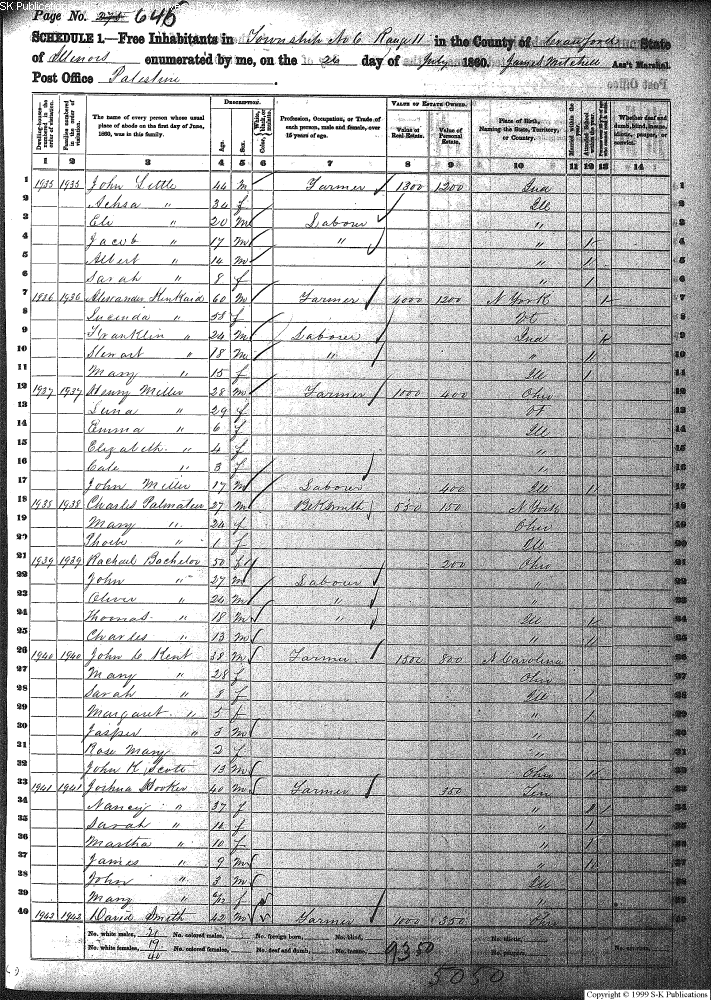 Page No. 275 640
SCHEDULE 1.—Free Inhabitants in Township No 6 Range 11 in the County of Crawford State
of Illinois enumerated by me, on the 26 day of July 1860. James Mitchell Ass't Marshal.
Post Office Palestine
DESCRIPTION. VALUE OF ESTATE OWNED.
Dwelling-houses—numbered in the order of visitation. Families numbered in the order of visitation. The name of every person whose usual place of abode on the first day of June, 1860, was in this family. Age. Sex. Color, White, black, or mulatto. Profession, Occupation, or Trade of each person, male and female, over 15 years of age. Value of Real Estate. Value of Personal Estate. Place of Birth, Naming the State, Territory, or Country. Married within the year. Attended School within the year. Whether deaf and dumb, blind, insane, idiotic, pauper, or convict.
1 2 3 4 5 6 7 8 9 10 11 12 13 14
1 1935 1935 John Little 44 m Farmer 1300 1200 Ind 1
2 Achsa " 34 f Ill 2
3 Eli " 20 m Labour " 3
4 Jacob " 17 m " " 1 4
5 Albert " 14 m " 1 5
6 Sarah " 8 f " 1 6
7 1936 1936 Alexander Kinkaid 60 m Farmer 4000 1200 N York 1 7
8 Lucinda " 55 f Vt 8
9 Franklin " 24 m Labourer Ind 9
10 Stewart " 18 m " " 1 10
11 Mary " 15 f Ill 1 11
12 1937 1937 Henry Miller 28 m Farmer 1000 400 Ohio 12
13 Luna " 29 f Vt 13
14 Emma " 6 f Ill 14
15 Elizabeth " 4 f " 15
16 Cate " 3 f " 16
17 John Miller 17 m Labour 400 Ill 1 17
18 1938 1938 Charles Palmateer 27 m Bl K Smith 550 150 N York 18
19 Mary " 24 f Ohio 19
20 Phoebe " 1 f Ill 20
21 1939 1939 Rachael Bachelor 50 f 200 Ohio 21
22 John " 27 m Labour " 22
23 Oliver " 24 m " " 23
24 Thomas " 18 m " Ill 1 24
25 Charles " 13 m " 1 25
26 1940 1940 John C Kent 38 m Farmer 1500 800 N Carolina 26
27 Mary " 28 f Ohio 27
28 Sarah " 8 f Ill 1 28
29 Margaret " 5 f " 1 29
30 Jasper " 3 m " 30
31 Rose Mary 2 f " 31
32 John K Scott 13 m Ohio 1 32
33 1941 1941 Joshua Hooker 40 m Farmer 350 Tin 33
34 Nancy " 37 f " 34
35 Sarah " 14 f " 1 35
36 Martha " 10 f " 1 36
37 James " 9 m " 1 37
38 John " 3 m Ill 38
39 Mary " f " 39
40 1942 1942 David Smith 42 m Farmer 1000 350 Ohio 40
No. white males, 21 No. colored males, No. foreign born, No. blind, No. idiotic,
No. white females, 19 No. colored females, No. deaf and dumb, No. insane, 9350 No. paupers, No. convicts,
40
5050
Copyright © 1999 S-K Publications